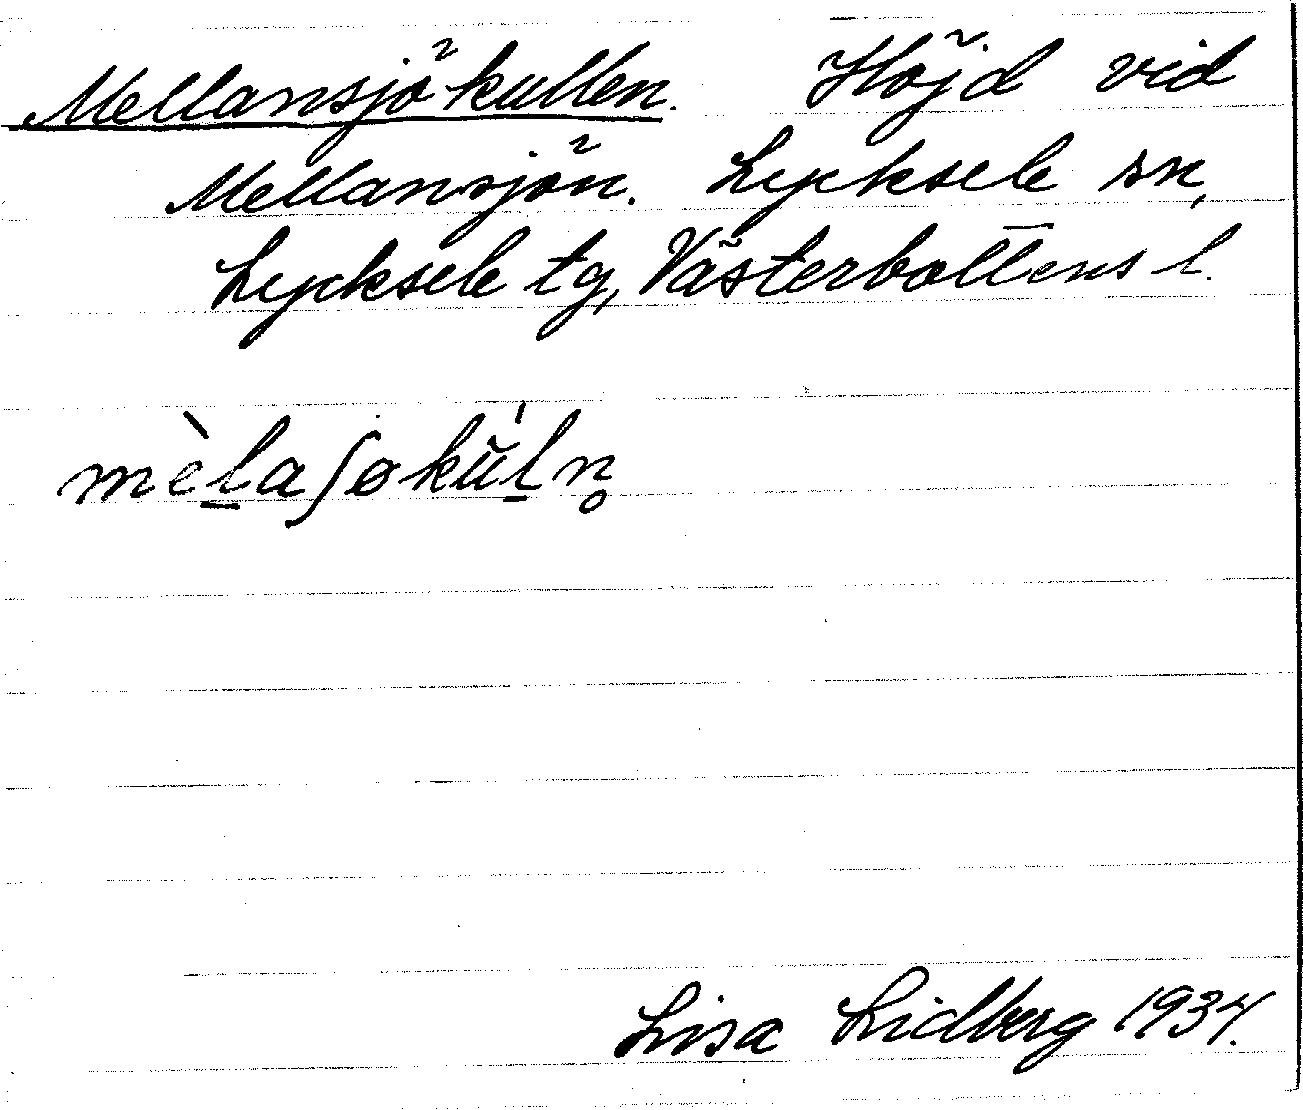 Mellansjökullen. Höjd vid
Mellansjön. Lycksele sn,
Lycksele tg, Västerbottens l.
mèl̲aʃøkŭ̈l̲n̥
Lisa Lidberg 1934.